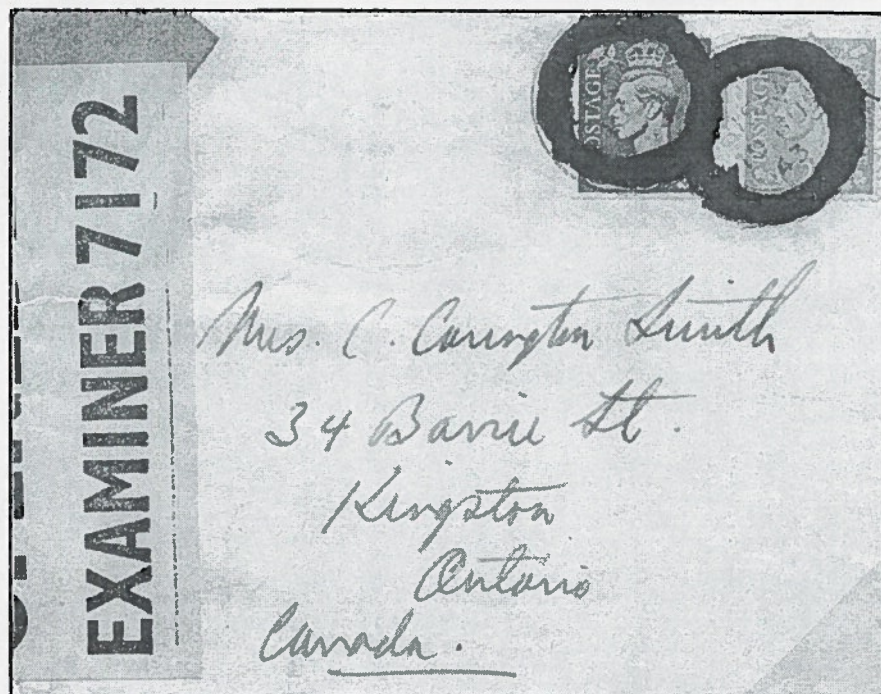 EXAMINER 7172
POSTAGE
POSTAGE
Mrs. C. Carington Smith
34 Barrie St.
Kingston
Ontario
Canada.